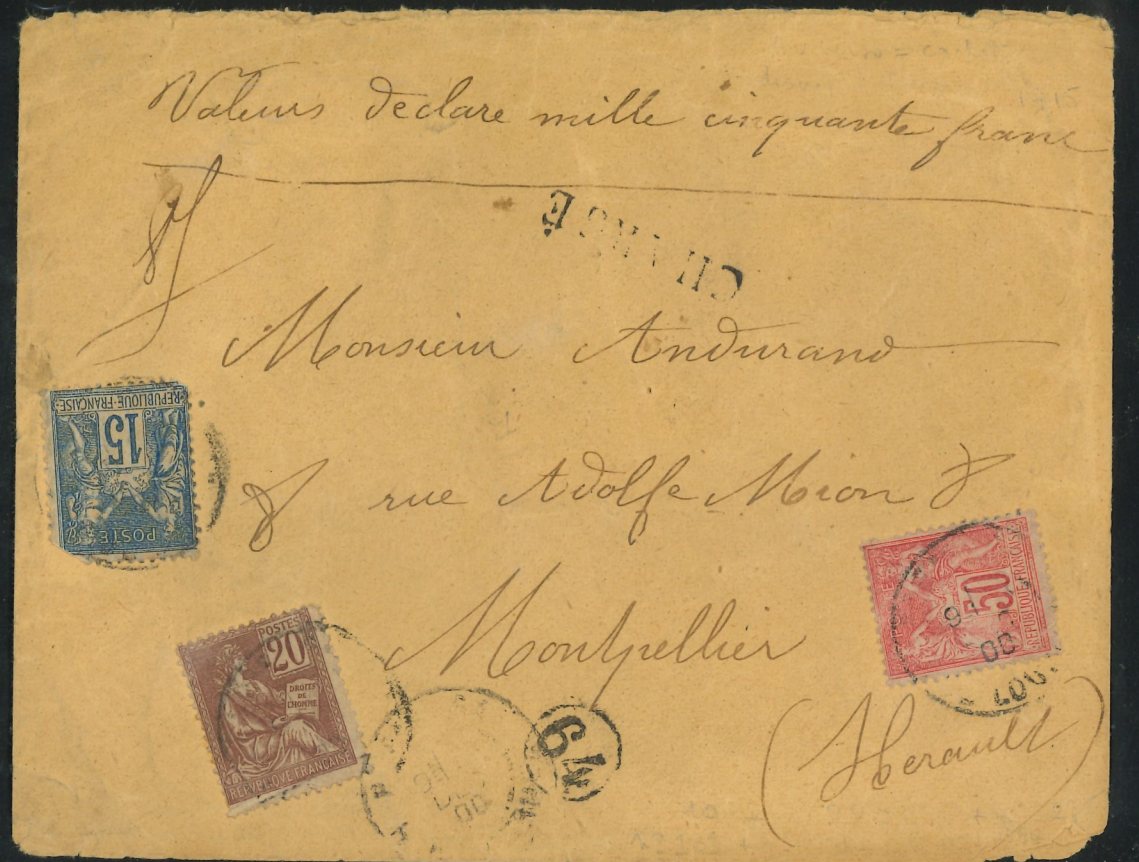 Valeurs declare mille cinquante franc
CHARGE
Monsieur Andurand
8 rue Adolfe Mion 8
Montpellier
(Herault)
REPUBLIQUE FRANÇAISE
15
POSTE
POSTES
20
DROITS
DE
L'HOMME
REPUBLIQUE FRANÇAISE
50
REPUBLIQUE FRANÇAISE
00